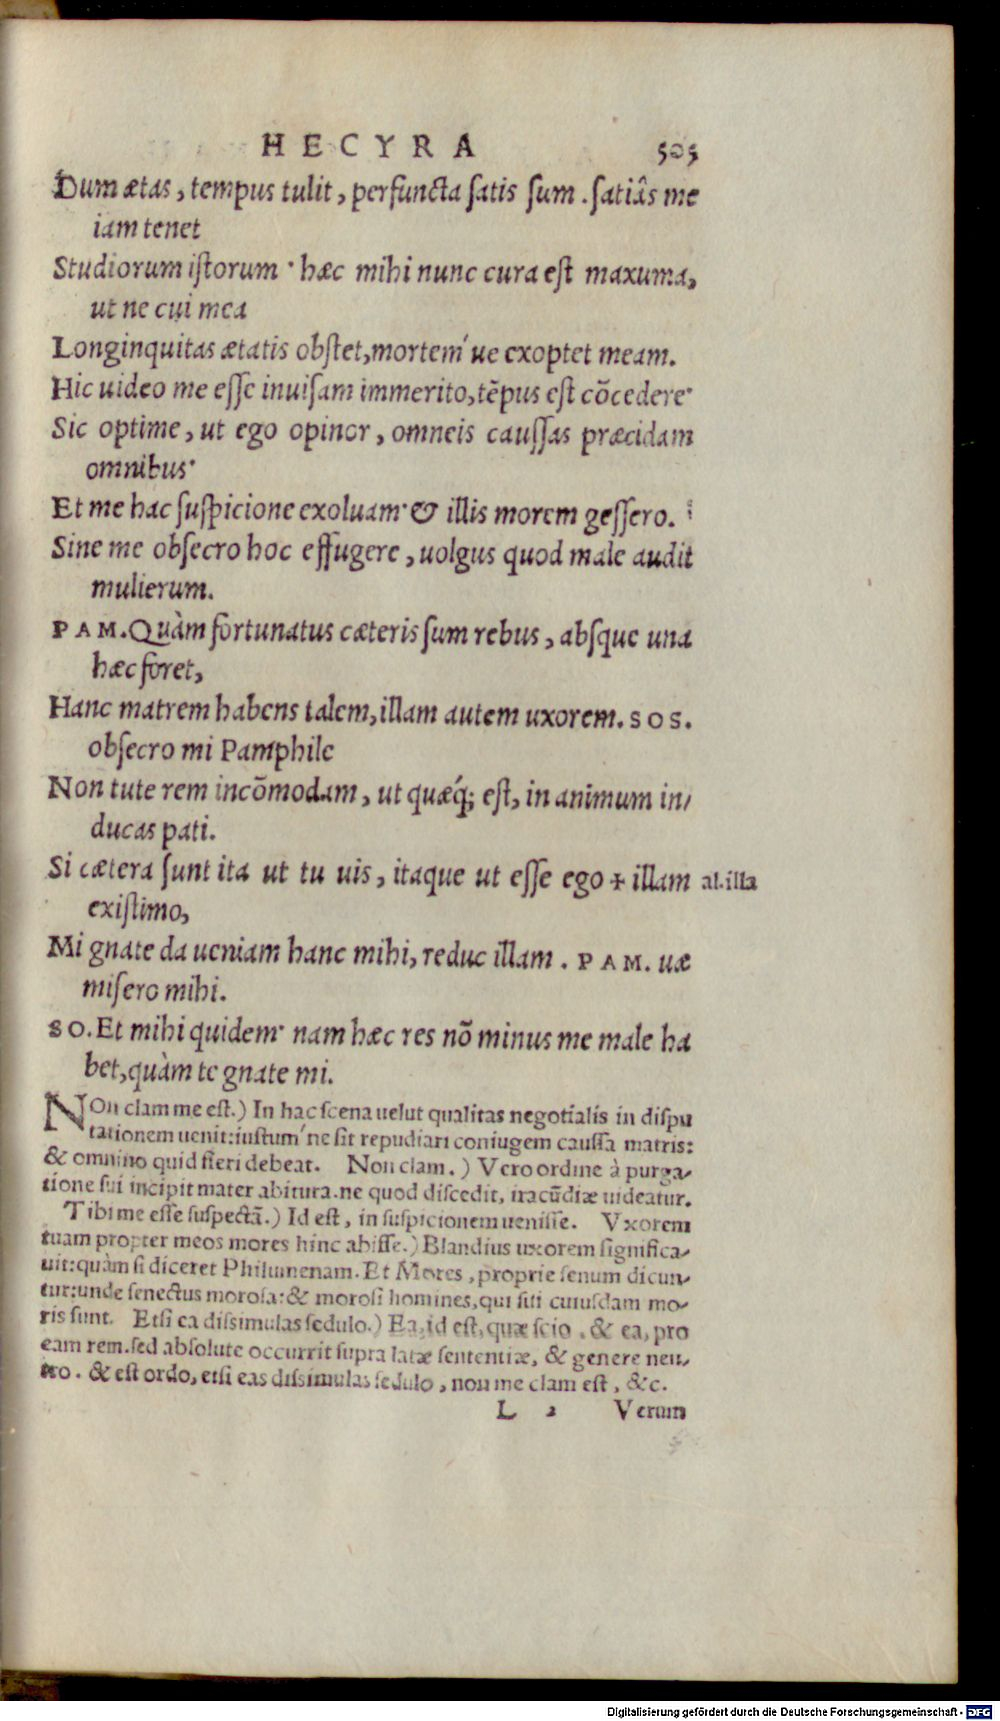 HECYRA 505
Dum ætas, tempus tulit, perfuncta satis sum. satiâs me
iam tenet
Studiorum istorum· hæc mihi nunc cura est maxuma,
ut ne cui mea
Longinquitas ætatis obstet, mortem´ue exoptet meam.
Hic uideo me esse inuisam immerito, tẽpus est cõcedere·
Sic optime, ut ego opinor, omneis caussas præcidam
omnibus·
Et me hac suspicione exoluam· & illis morem gessero.
Sine me obsecro hoc effugere, uolgus quod male audit
mulierum.
PAM. Quàm fortunatus cæteris sum rebus, absque una
hæc foret,
Hanc matrem habens talem, illam autem uxorem. SOS.
obsecro mi Pamphile
Non tute rem incõmodam, ut quæq́; est, in animum in/
ducas pati.
Si cætera sunt ita ut tu uis, itaque ut esse ego + illam al. illa
existimo,
Mi gnate da ueniam hanc mihi, reduc illam. PAM. uæ
misero mihi.
SO. Et mihi quidem· nam hæc res nõ minus me male ha
bet, quàm te gnate mi.
NOn clam me est.) In hac scena uelut qualitas negotialis in dispu
tationem uenit: iustum´ne sit repudiari coniugem caussa matris:
& omnino quid fieri debeat. Non clam.) Vero ordine à purga/
tione sui incipit mater abitura. ne quod discedit, iracũdiæ uideatur.
Tibi me esse suspectã.) Id est, in suspicionem uenisse. Vxorem
tuam propter meos mores hinc abisse.) Blandius uxorem significa/
uit: quàm si diceret Philumenam. Et Mores, proprie senum dicun/
tur: unde senectus morosa: & morosi homines, qui sui cuiusdam mo/
ris sunt. Etsi ea dissimulas sedulo.) Ea, id est, quæ scio. & ea, pro
eam rem. sed absolute occurrit supra latæ sententiæ, & genere neu/
tro. & est ordo, etsi eas dissimulas sedulo, non me clam est, &c.
L 2 Verum
Digitalisierung gefördert durch die Deutsche Forschungsgemeinschaft - DFG